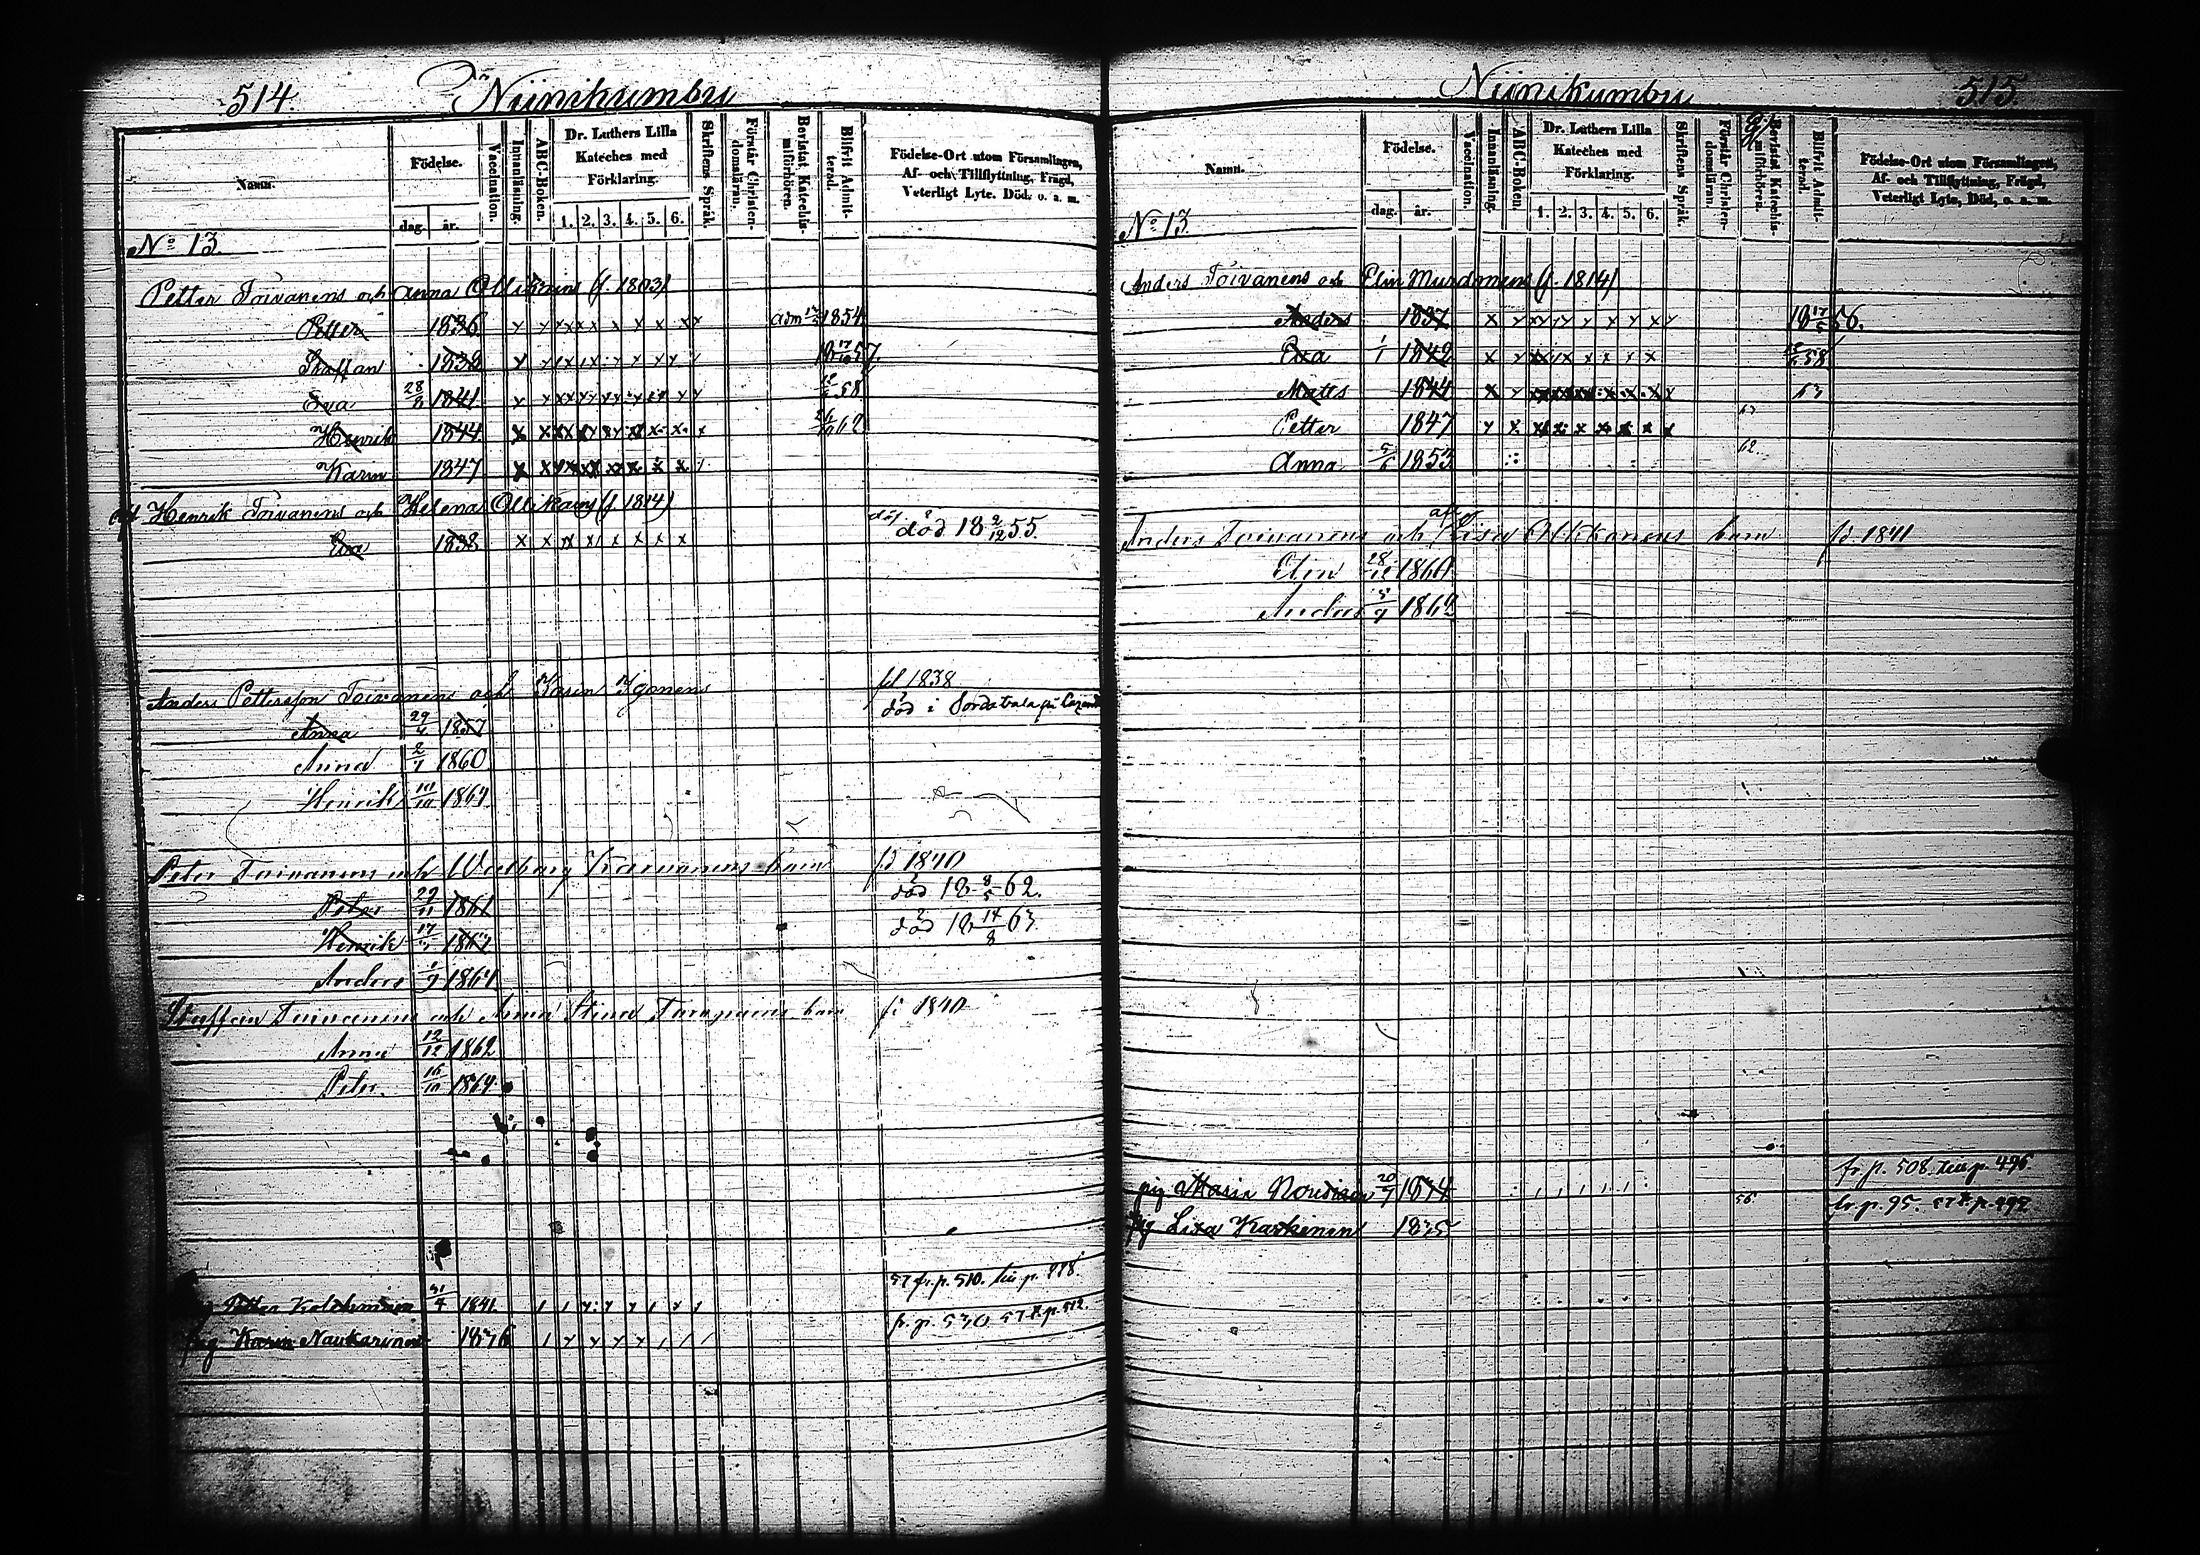 514 Niinikumbu
Namn. Födelse. dag. år. Vaccination. Innanläsning. ABC-Boken. Dr. Luthers Lilla Kateches med Förklaring. 1. 2. 3. 4. 5. 6. Skriftens Språk. Förstår Christendomsläran. Bevistat Katechismiförhören. Blifvit Admitterad. Födelse-Ort utom Församlingen, Af- och Tillflyttning, Frägd, Veterligt Lyte. Död. o. a. m.
No 13.
Petter Toivanens och Anna Ollikains (f. 1803)
Petter 1836 adm 1854
Staffan 1838 57
Eva 28/8 1841 58
Henrik 1844 62
Karin 1847
Henrik Toivanens och Helena Ollikains (f. 1814)
Eva 1838 död 18 2/12 55.
Anders Pettersson Toivanens och Karin Igonens fd 1838
död i Sordavala
Anna 29/4 1857
Anna 2/7 1860
Henrik 10/10 1864
Peter Toivanens och Walborg Karvanens barn fd 1840
Peter 29/11 1861 död 18 8/5 62.
Henrik 17/ 186 död 18 14/8 63.
Anders /9 1864
Staffan Toivanens och Anna Stina barn fd 1840
Anna 12/12 1862
Peter 16/10 1864
Petter 31/4 1841 57 fr. p. 510. p.
pig Karin Naukarinen 1836 fr. p. 530 57 p. 512.
Niinikumbu 515.
Namn. Födelse. dag. år. Vaccination. Innanläsning. ABC-Boken. Dr. Luthers Lilla Kateches med Förklaring. 1. 2. 3. 4. 5. 6. Skriftens Språk. Förstår Christendomsläran. Bevistat Katechismiförhören. Blifvit Admitterad. Födelse-Ort utom Församlingen, Af- och Tillflyttning, Frägd, Veterligt Lyte, Död, o. a. m.
No 13.
Anders Toivanens och Elin Murdonens (f. 1814)
Anders 1837 18 17/ 56.
Eva 1/1 1842 58
Matts 1844 63
Petter 1847 63
Anna 5/6 1853 62.
Anders Toivanens och Lisa barn fd. 1841
Elin 28/12 1860
Anders /9 1862
pig Maria 20/7 1834 fr. p. 508. p. 496
pig Lisa Karhinen 1835 56 fr. p. 95. 57 p. 492